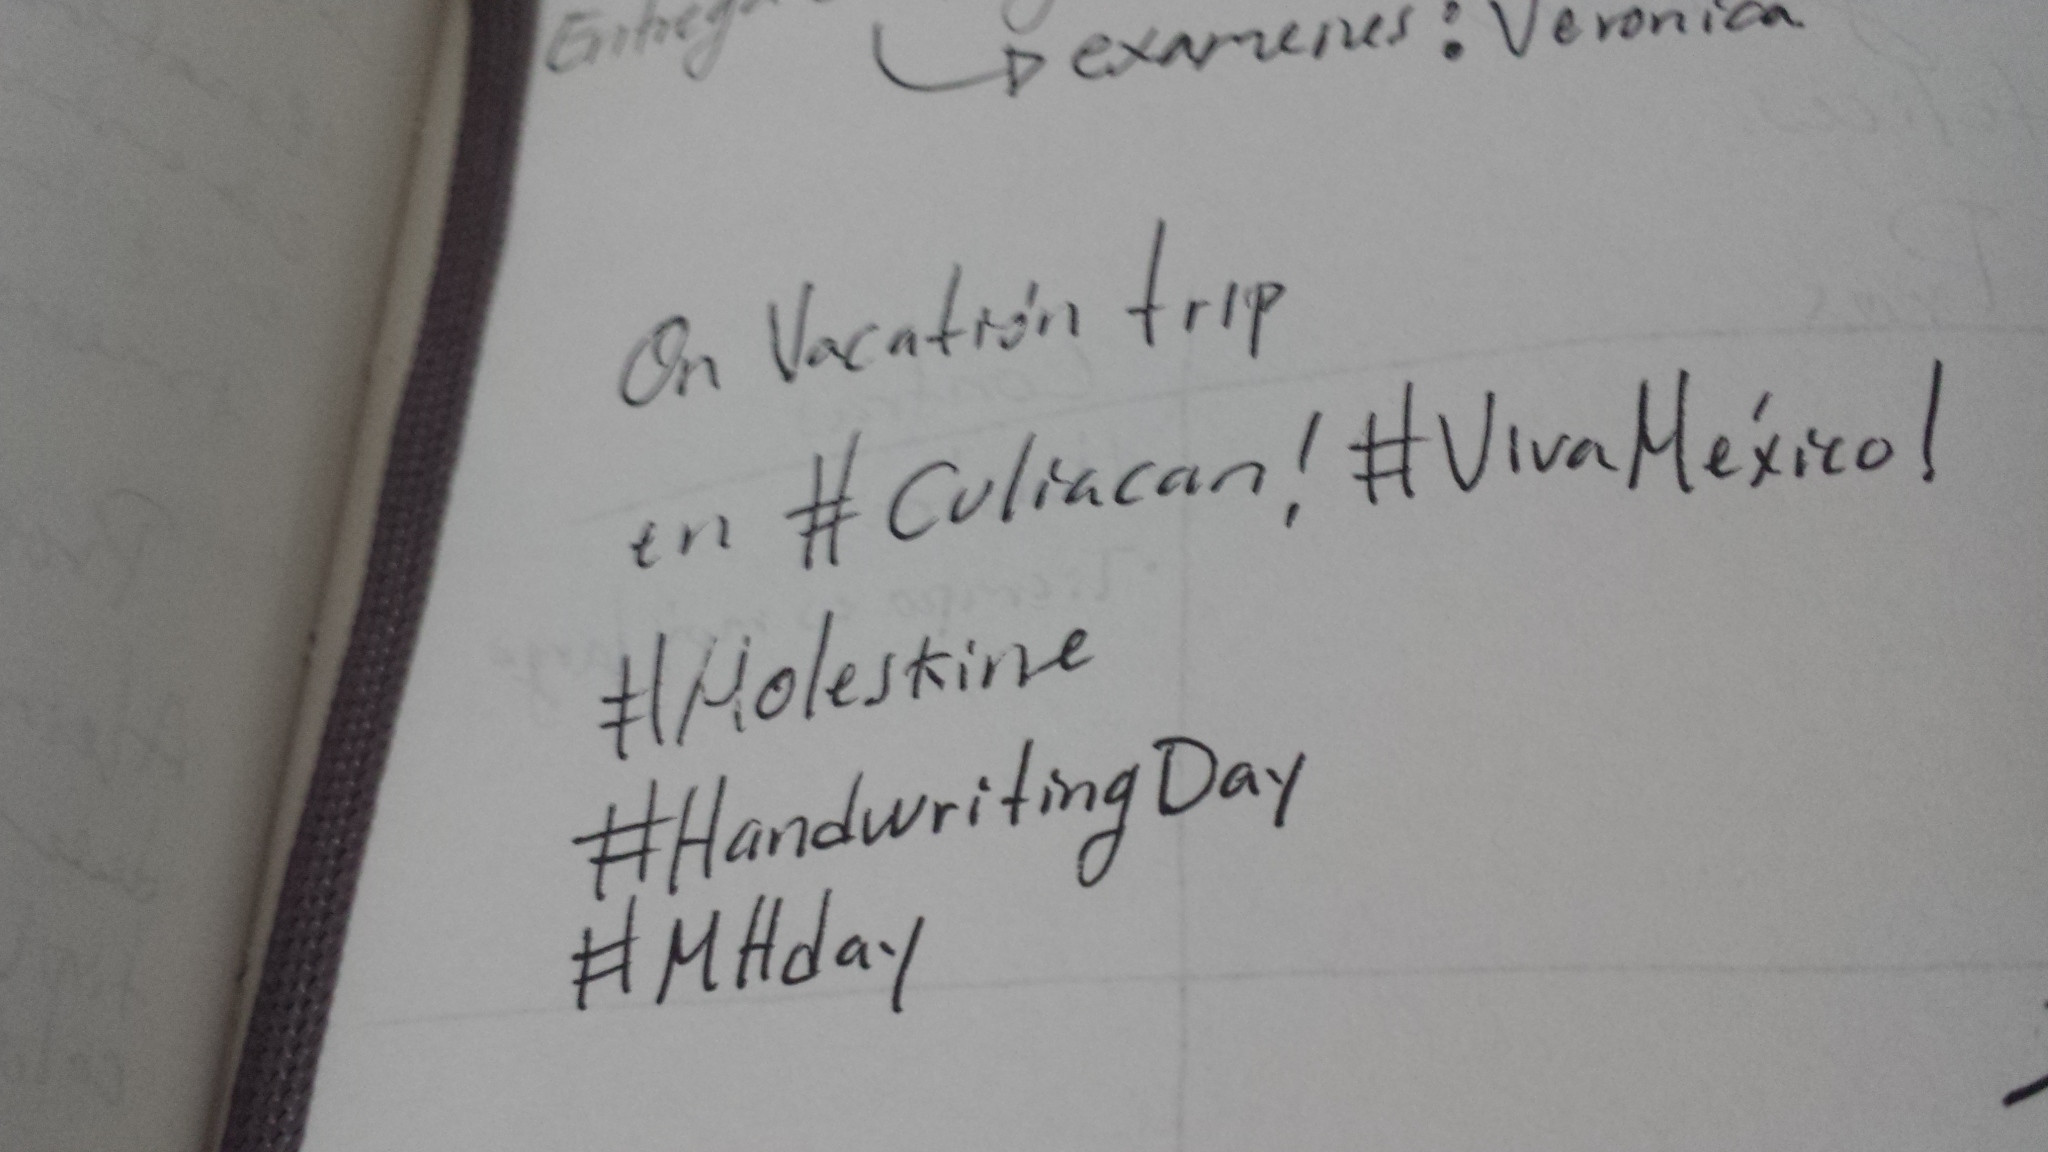 Entrega
examenes: Veronica
On Vacatión trip
en #Culiacan! #VivaMéxico!
#Moleskine
#HandwritingDay
#MHday